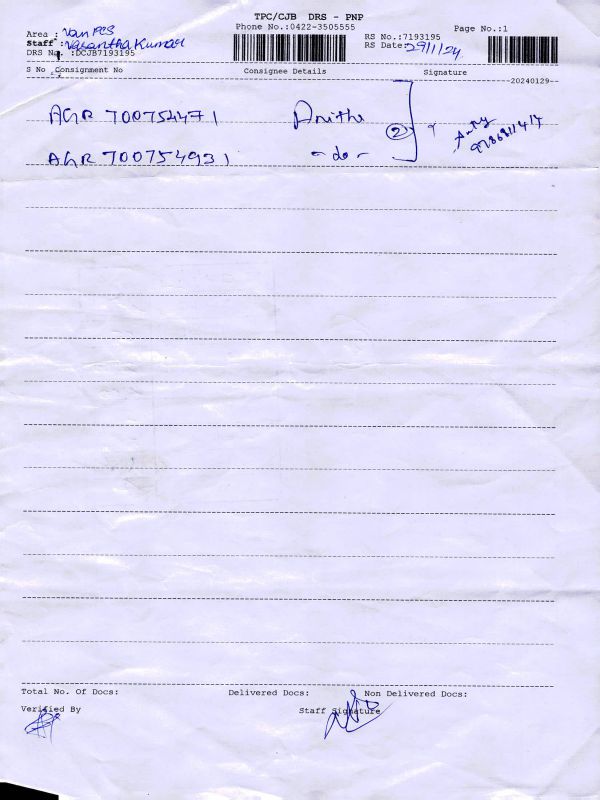 TPC/CJB DRS - PNP
Phone No.:0422-3505555
Page No.:1
Area : Van PCS
Staff : Vasantha Kumar
RS No.:7193195
RS Date: 29/1/24
DRS No. :DCJB7193195
S No Consignment No Consignee Details Signature
--20240129--
AGR 700754471 Anitha
②
AGR 700754931 -do-
Total No. Of Docs: Delivered Docs: Non Delivered Docs:
Verified By Staff Signature